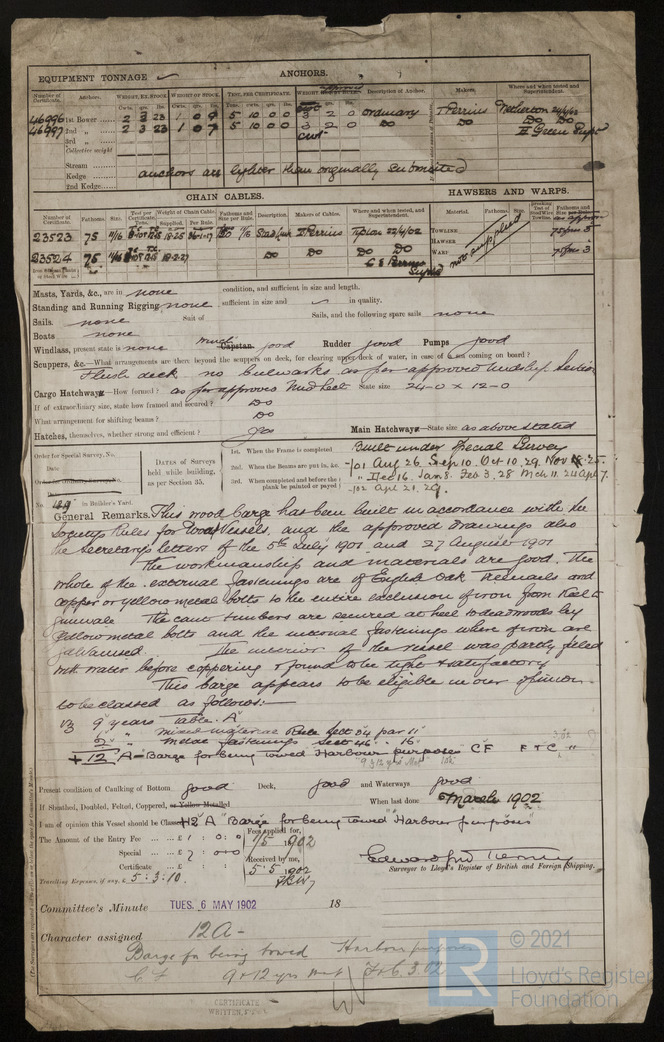 EQUIPMENT TONNAGE
ANCHORS.
Number of Certificate. Anchors. WEIGHT, EX. STOCK. WEIGHT OF STOCK. TEST, PER CERTIFICATE. WEIGHT Description of Anchor. Makers. Where and when tested and Superintendent.
Cwts. qrs. lbs. Cwts. qrs. lbs. Tons. cwts. qrs. lbs.
46996 1st Bower 2 3 23 1 0 9 5 10 0 0 3 2 0 ordinary T Perrins Netherton 24/4/02
46997 2nd " 2 3 23 1 0 7 5 10 0 0 3 2 0 Do Do Do Do
3rd " cwt Green Supt
Collective weight
Stream
Kedge
2nd Kedge
anchors are lighter than originally submitted
CHAIN CABLES.
HAWSERS AND WARPS.
Number of Certificate. Fathoms. Size. Test per Certificate Tons. Weight of Chain Cable. Supplied. Per Rule. Fathoms and Size per Rule. Description. Makers of Cables. Where and when tested, and Superintendent. Material. Fathoms. Size.
23523 75 11/16 Stud Link T Perrins Tipton 22/4/02 TOWLINE 75 fms 5
23524 75 11/16 Do Do Do Do HAWSER
WARP 75 fms 3
not supplied
Perrins Supt
Masts, Yards, &c., are in none condition, and sufficient in size and length.
Standing and Running Rigging none sufficient in size and in quality.
Sails. none Suit of Sails, and the following spare sails none
Boats none
Windlass, present state is none Winch Capstan good Rudder good Pumps good
Scuppers, &c.—What arrangements are there beyond the scuppers on deck, for clearing upper deck of water, in case of sea coming on board?
Flush deck no bulwarks as per approved midship section
Cargo Hatchways—How formed? as per approved Mid Sect State size 24-0 x 12-0
If of extraordinary size, state how framed and secured? Do
What arrangement for shifting beams? Do
Hatches, themselves, whether strong and efficient? Yes Main Hatchways—State size as above stated
Order for Special Survey, No.
Date
No. 49 in Builder's Yard.
DATES of Surveys held while building, as per Section 35.
1st. When the Frame is completed
2nd. When the Beams are put in, &c.
3rd. When completed and before the plank be painted or payed
Built under Special Survey
-/01 Aug 26, Sep 10. Oct 10, 29, Nov 18. 25.
" Dec 16 Jan 8. Feb 3. 28 Mch 11. 24 Apl 7.
-/02 Apl 21. 29.
General Remarks. This wood barge has been built in accordance with the
Societys Rules for Wood Vessels, and the approved drawings also
the Secretarys letters of the 5th July 1901 and 27 August 1901
The workmanship and materials are good. The
whole of the external fastenings are of English Oak treenails and
copper or yellow metal bolts to the entire exclusion of iron from Keel to
gunwale. The cant timbers are secured at heel to deadwoods by
yellow metal bolts and the internal fastenings where of iron are
galvanised. The interior of the vessel was partly filled
with water before coppering & found to be tight & satisfactory
This barge appears to be eligible in our opinion
to be classed as follows:—
9 years Table. A"
" mixed material Rule Sect 54 par 11"
" metal fastenings Sect 46 " 16"
+12 A- Barge for being towed Harbour purposes CF F T C "
Present condition of Caulking of Bottom good Deck, good and Waterways good
If Sheathed, Doubled, Felted, Coppered, or Yellow Metalled When last done March 1902
I am of opinion this Vessel should be Classed +12 A "Barge for being towed Harbour purposes"
The Amount of the Entry Fee ... £ 1 : 0 : 0 Fees applied for, 1/5 1902
Special ... £ 7 : 0 : 0 Received by me,
Certificate ... £ : : 5·5 1902
Travelling Expenses, if any, £ 5 : 3 : 10.
Surveyor to Lloyd's Register of British and Foreign Shipping.
Committee's Minute TUES. 6 MAY 1902 18
Character assigned 12A -
Barge for being towed Harbour purposes
C.F 9+12 yrs Met F+C. 3.02
CERTIFICATE WRITTEN
LR
© 2021
Lloyd's Register
Foundation